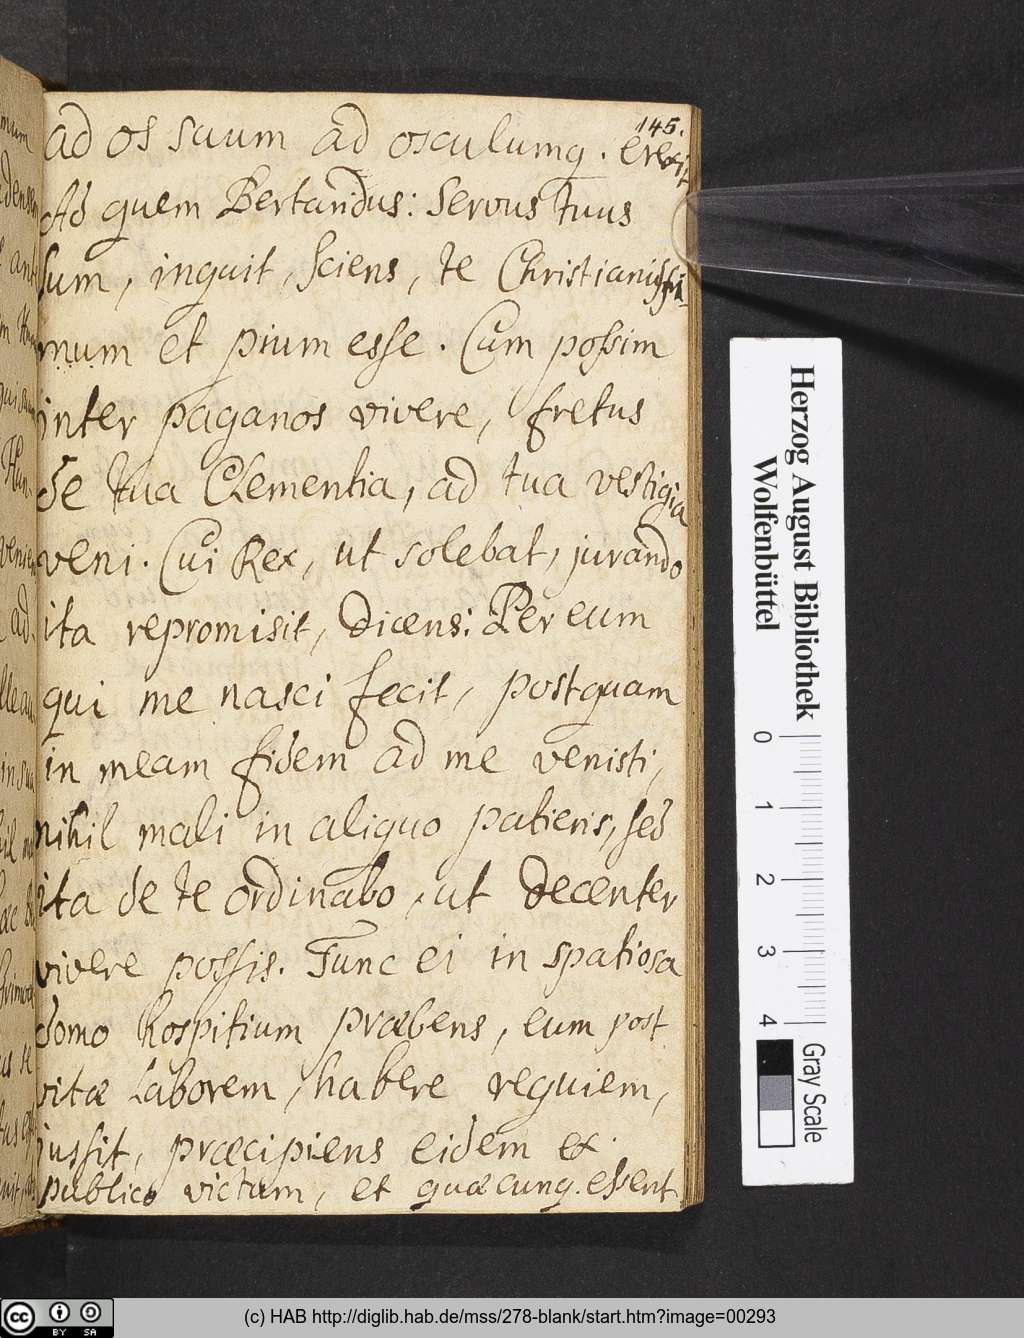 145.
ad os suum ad osculumq. erexit
Ad quem Bertandus: Servus tuus
sum, inquit, sciens, te Christianissi-
mum et pium esse. Cum possim
inter paganos vivere, fretus
de tua Clementia, ad tua vestigia
veni. Cui Rex, ut solebat, jurando
ita repromisit, dicens: Per eum
qui me nasci fecit, postquam
in meam fidem ad me venisti,
nihil mali in aliquo patieris, sed
ita de te ordinabo, ut decenter
vivere possis. Tunc ei in spatiosa
domo hospitium præbens, eum post
vitæ laborem, habere requiem,
jussit, præcipiens eidem ex
publico victum, et quæcunq. essent
Herzog August Bibliothek
Wolfenbüttel
0 1 2 3 4
Gray Scale
cc BY SA
(c) HAB http://diglib.hab.de/mss/278-blank/start.htm?image=00293